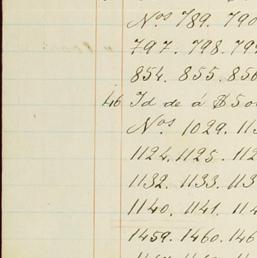 Nos 789. 790
797. 798. 799
854. 855. 856
46 Id de á $ 500
Nos 1029. 113
1124. 1125. 112
1132. 1133. 113
1140. 1141. 114
1459. 1460. 146